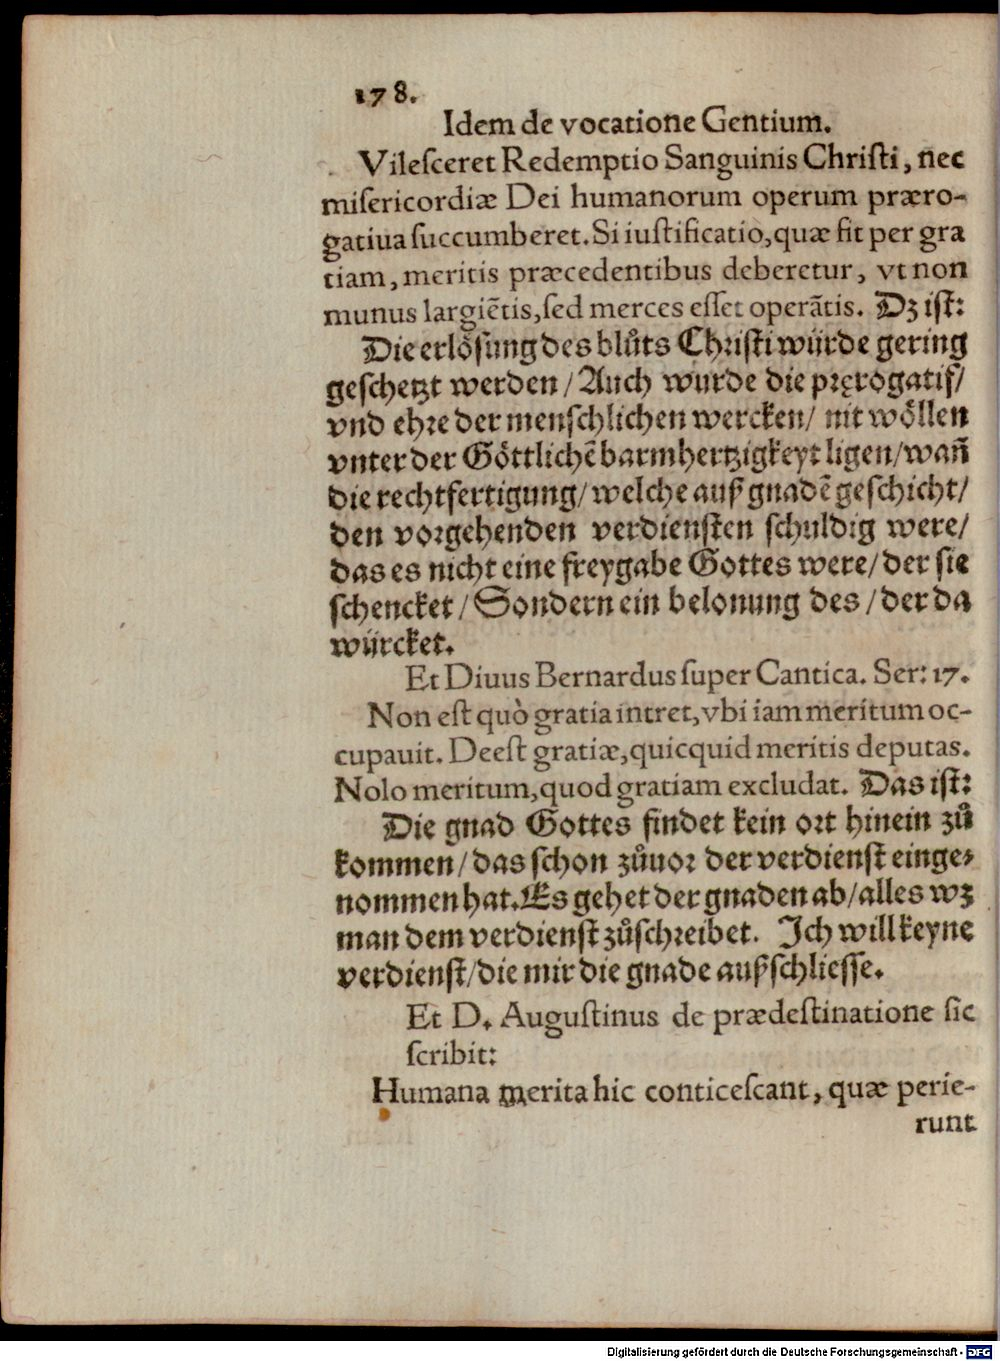 178.
Idem de vocatione Gentium.
Vileſceret Redemptio Sanguinis Chriſti, nec
miſericordiæ Dei humanorum operum præro-
gatiua ſuccumberet. Si iuſtificatio, quæ fit per gra
tiam, meritis præcedentibus deberetur, vt non
munus largiẽtis, ſed merces eſſet operãtis. Dz iſt:
Die erlöſung des blůts Chriſti würde gering
geſchetzt werden / Auch wurde die pręrogatif/
vnd ehre der menſchlichen wercken / nit wöllen
vnter der Göttlichẽ barmhertzigkeyt ligen / wañ
die rechtfertigung / welche auß gnadẽ geſchicht /
den vorgehenden verdienſten ſchuldig were /
das es nicht eine freygabe Gottes were / der ſie
ſchencket / Sondern ein belonung des / der da
würcket.
Et Diuus Bernardus ſuper Cantica. Ser: 17.
Non eſt quò gratia intret, vbi iam meritum oc-
cupauit. Deeſt gratiæ, quicquid meritis deputas.
Nolo meritum, quod gratiam excludat. Das iſt:
Die gnad Gottes findet kein ort hinein zů
kommen / das ſchon zůuor der verdienſt einge-
nommen hat. Es gehet der gnaden ab / alles wz
man dem verdienſt zůſchreibet. Ich will keyne
verdienſt / die mir die gnade außſchlieſſe.
Et D. Auguſtinus de prædeſtinatione ſic
ſcribit:
Humana merita hic conticeſcant, quæ perie-
runt
Digitalisierung gefördert durch die Deutsche Forschungsgemeinschaft - DFG